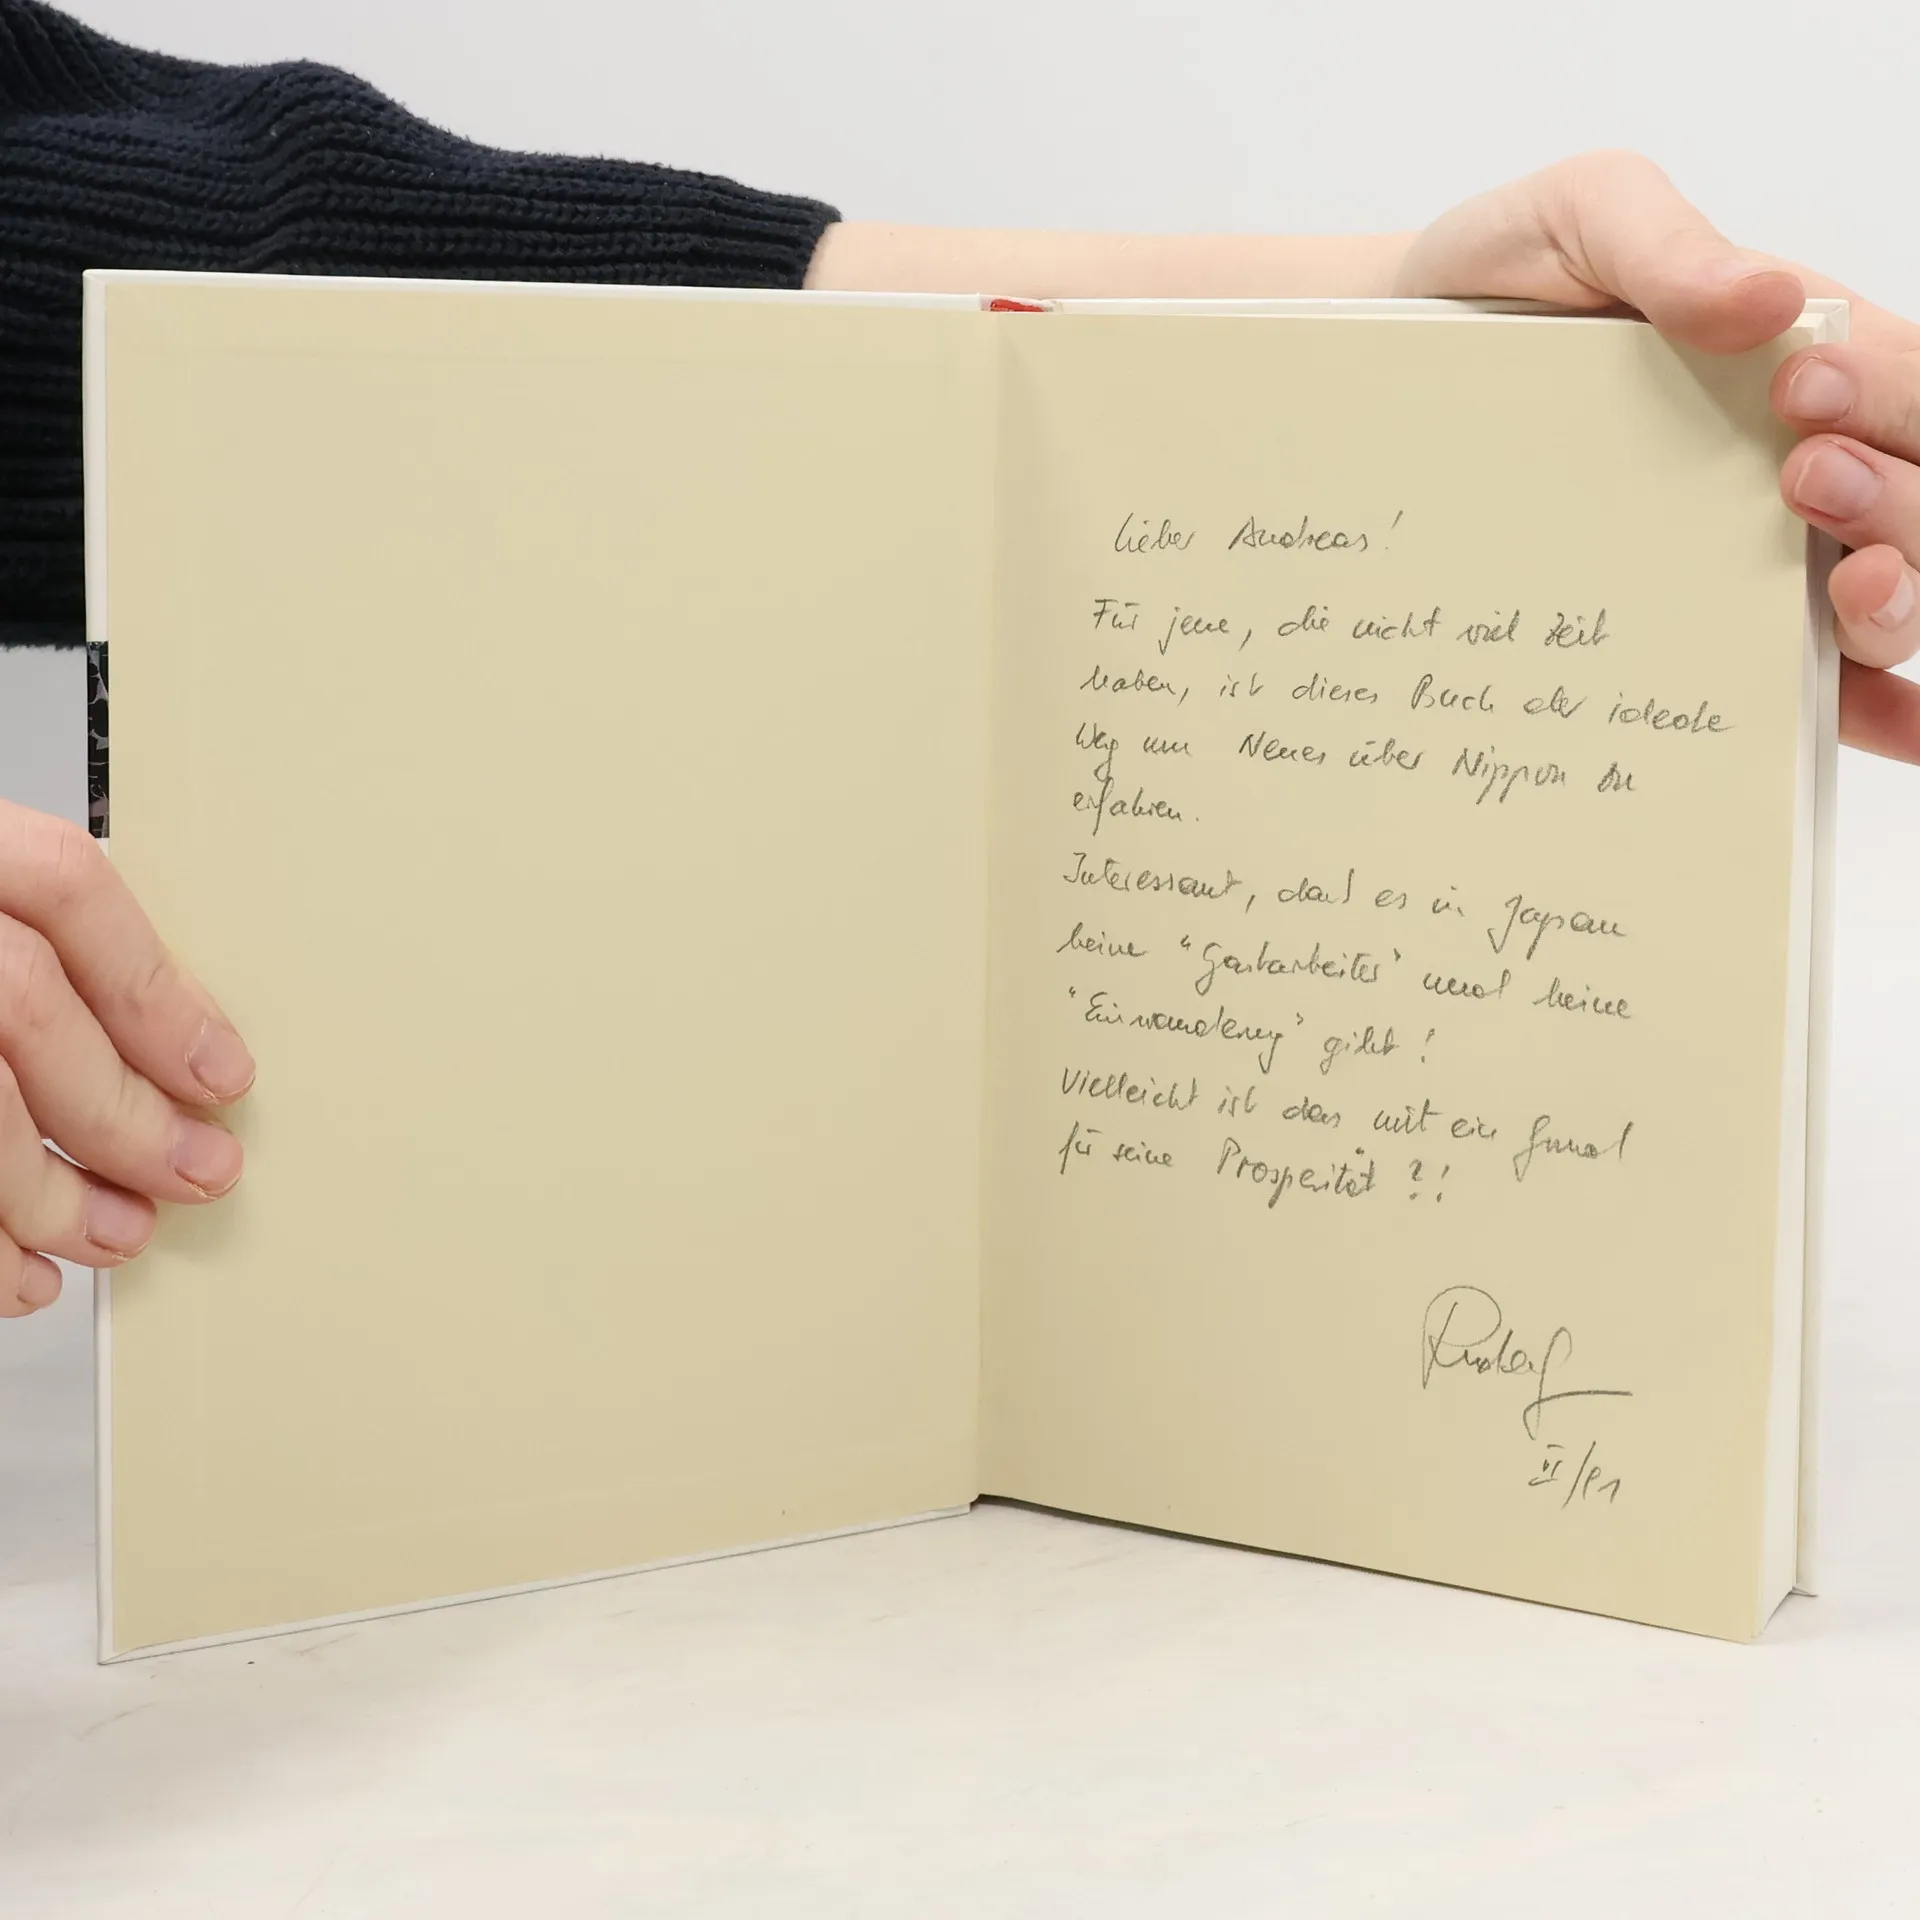 Lieber Andreas!
Für jene, die nicht viel Zeit
haben, ist dieses Buch der ideale
Weg um Neues über Nippon zu
erfahren.
Interessant, dass es in Japan
keine "Gastarbeiter" und keine
"Einwanderung" gibt!
Vielleicht ist das mit ein Grund
für seine Prosperität?!
Rudolf
VI/91